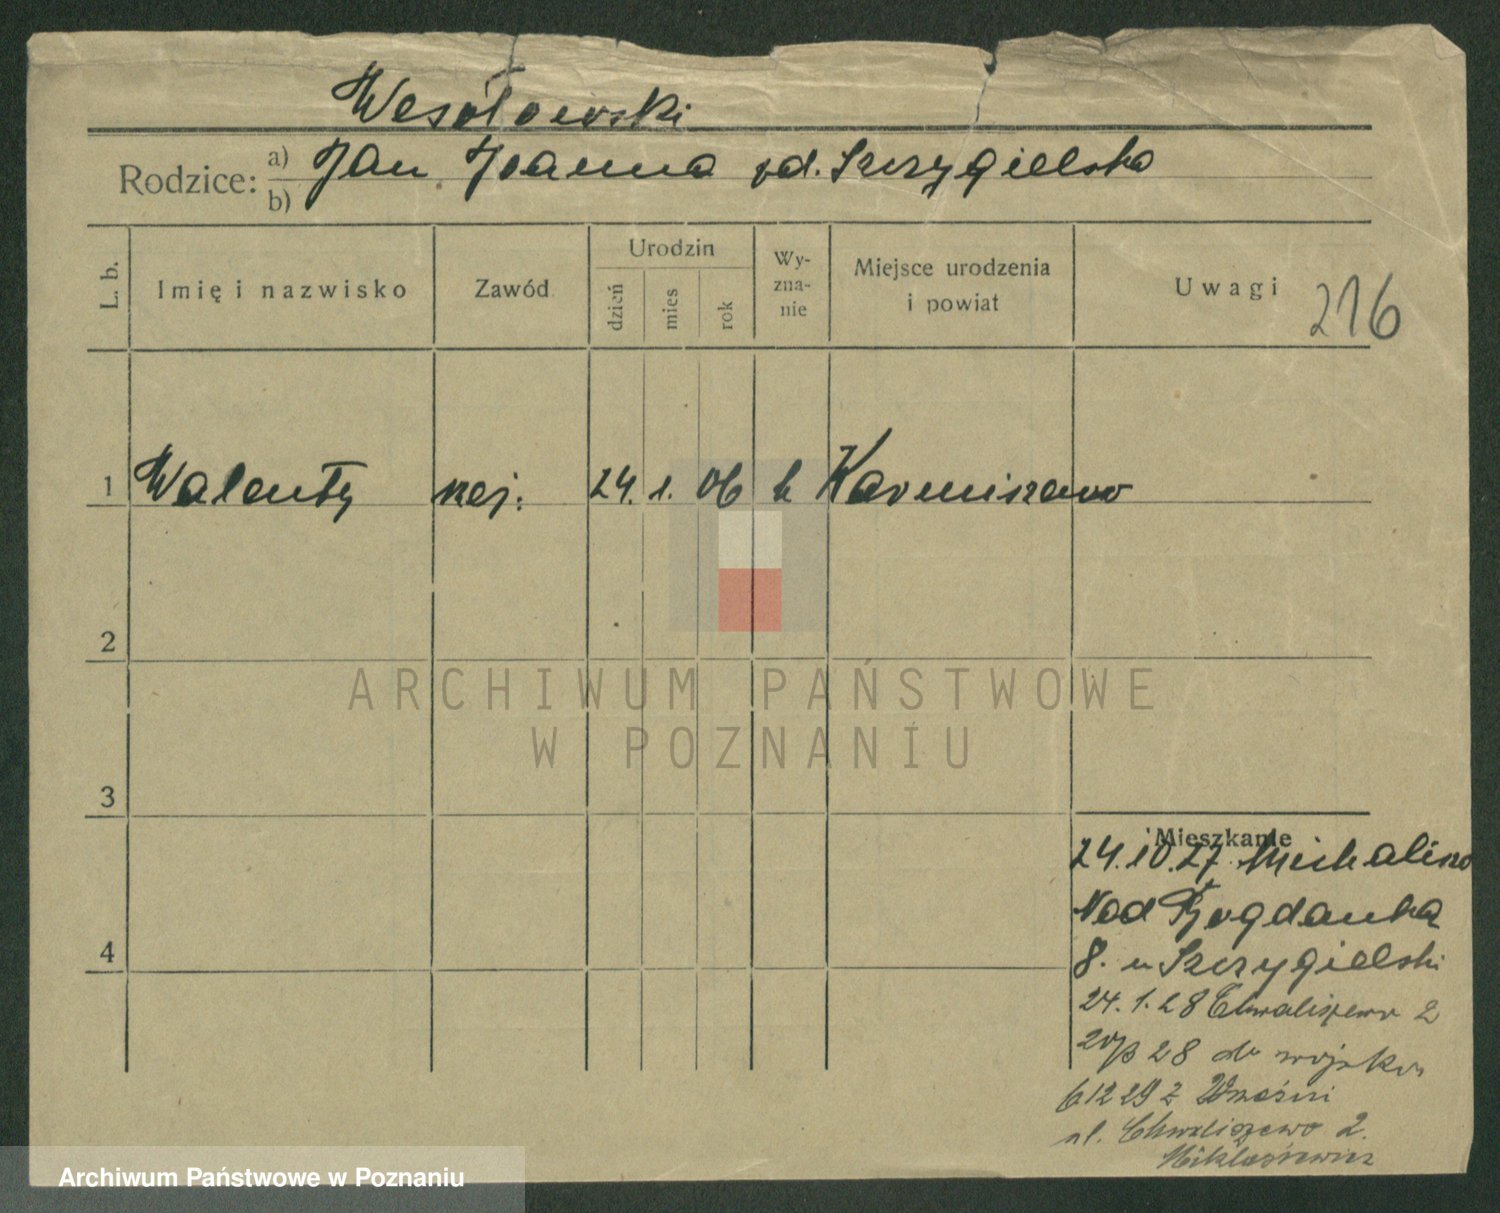 Wesołowski
Rodzice: a) Jan Joanna zd. Szczygielska
b)
L. b. Imię i nazwisko Zawód Urodzin dzień mies rok Wyznanie Miejsce urodzenia i powiat Uwagi 216
1 Walenty rzeź. 24. 1. 06 k Karmiszewo
2
ARCHIWUM PAŃSTWOWE
W POZNANIU
3
Mieszkanie
24.10.27
Nad Bogdanką
8. u Szczygielski
4
24.1.28 Chwaliszewo 2
28 do wojska
6 12 29 z Wrześni
ul. Chwaliszewo 2.
Mikłasiewicz
Archiwum Państwowe w Poznaniu